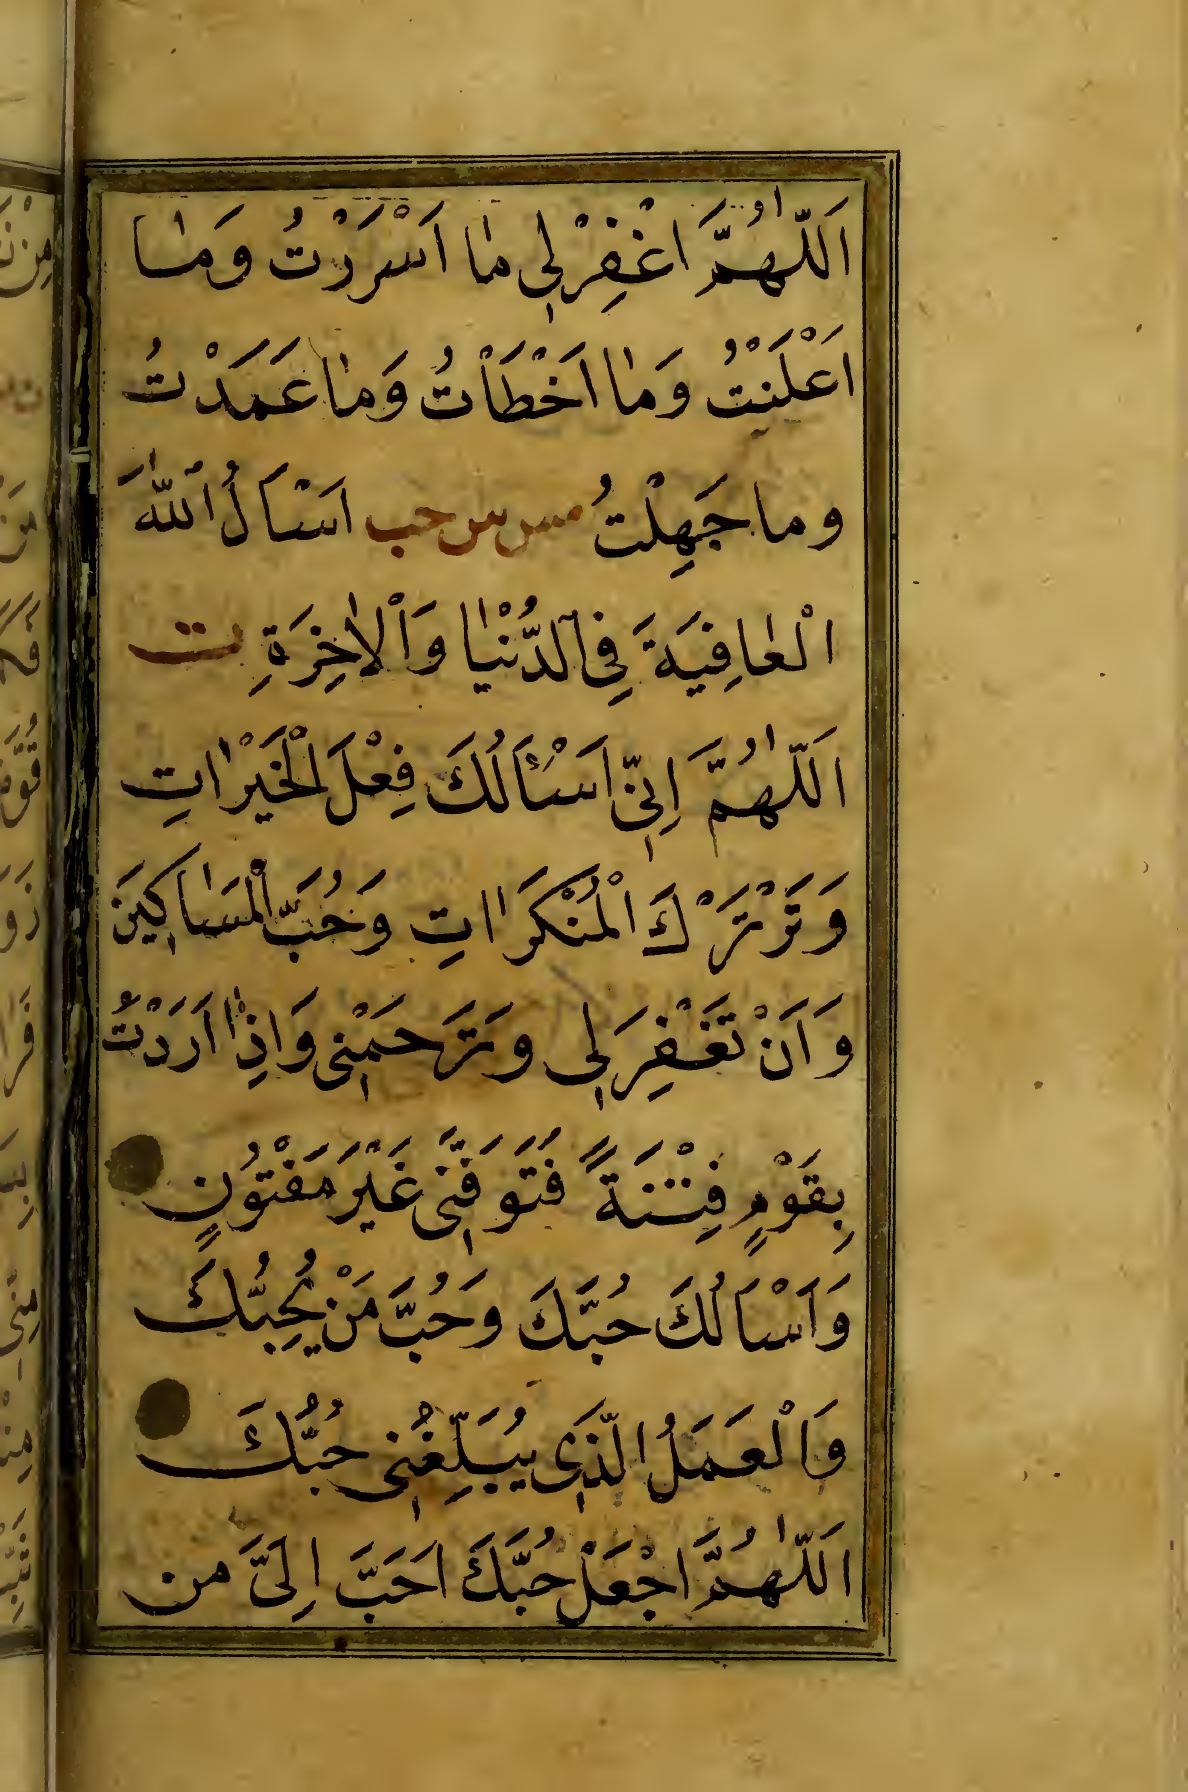 اَللّٰهُمَّ اغْفِرْلِى مٰا اَسْرَرْتُ وَمٰا
اَعْلَنْتُ وَمٰا اَخْطَاْتُ وَمٰا عَمَدْتُ
وما جَهِلْتُ مس س حب اَسْاَلُ اللّٰهَ
الْعٰافِيَةَ فِى الدُّنْيٰا وَالْاٰخِرَةِ ت
اَللّٰهُمَّ اِنِّى اَسْئَالُكَ فِعْلَ الْخَيْرٰاتِ
وَتَرْتَرْكَ الْمُنْكَرٰاتِ وَحُبَّ الْمَسٰاكِينَ
وَاَنْ تَغْفِرَلِى وتَرَحمَْنِى وَاِذٰا اَرَدْتُ
بِقَوْمٍ فِتْنَةً فَتَوَفَّنِى غَيْرَ مَفْتُونٍ
وَاَسْاَلُكَ حُبَّكَ وَحُبَّ مَنْ يُحِبُّكَ
وَالْعَمَلُ الَّذِى يُبَلِّغُنِى حُبُّكَ
اَللّٰهُمَّ اجْعَلْ حُبَّكَ اَحَبَّ اِلَىَّ من